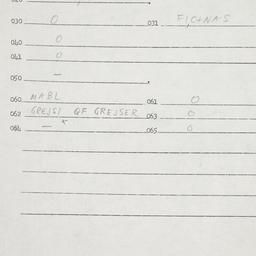 030 0 031
040 0
041 0
050 -
060 MABL 061 0
062 GREJSI QF GREJSER 063 0
064 - 065 0